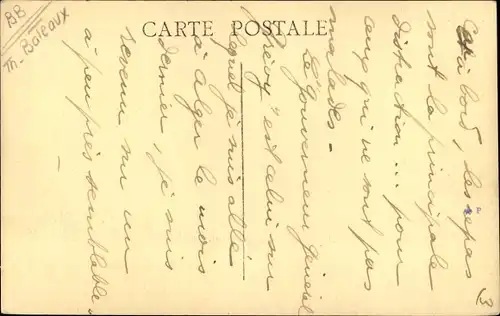 BB
Th - Bateaux
CARTE POSTALE
à bord, les repas
sont la principale
distraction... pour
ceux qui ne sont pas
malades -
Le "Gouverneur général
" est celui sur
lequel je suis allé
à alger le mois
dernier, je suis
revenu sur un
à peu près semblable.
3